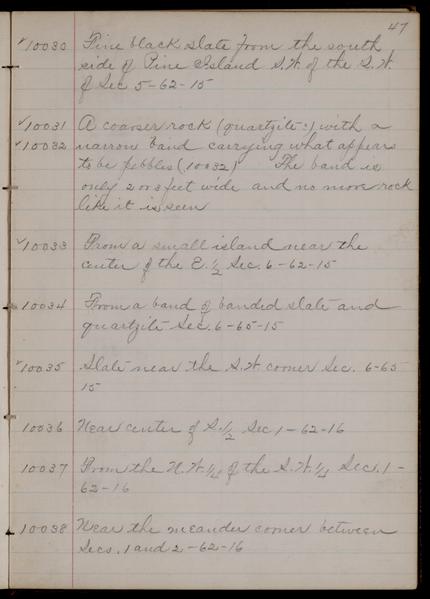 47
✓10030 Fine black slate from the south
side of Pine Island S.W. of the S.W.
of Sec 5-62-15
✓10031 A coarser rock (quartzite?) with a
✓10032 narrow band carrying what appears
to be pebbles (10032) The band is
only 2 or 3 feet wide and no more rock
like it is seen
✓10033 From a small island near the
center of the E. 1/2 Sec. 6-62-15
✓10034 From a band of banded slate and
quartzite Sec. 6-65-15
✓10035 Slate near the S.W. corner Sec. 6-65
15
10036 Near center of S. 1/2 Sec 1-62-16
10037 From the N.W. 1/4 of the S.W. 1/4 Sec. 1-
62-16
10038 Near the meander corner between
Secs. 1 and 2-62-16